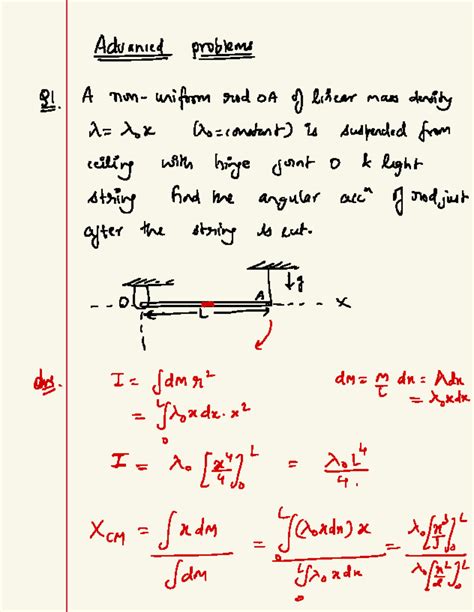 Advanced problems
Q1. A non-uniform rod OA of linear mass density
λ = λ₀x (λ₀ = constant) is suspended from
ceiling with hinge joint O & light
string find the angular accⁿ of rod just
after the string is cut.
O A ↓g
L X
Ans. I = ∫dM r² dM = M/L dx = λdx
= ∫₀ᴸ λ₀x dx · x² = λ₀xdx
I = λ₀ [x⁴/4]₀ᴸ = λ₀L⁴/4.
X_CM = ∫x dM / ∫dM = ₀∫ᴸ(λ₀xdx) x / ₀∫ᴸλ₀x dx = λ₀[x³/3]₀ᴸ / λ₀[x²/2]₀ᴸ